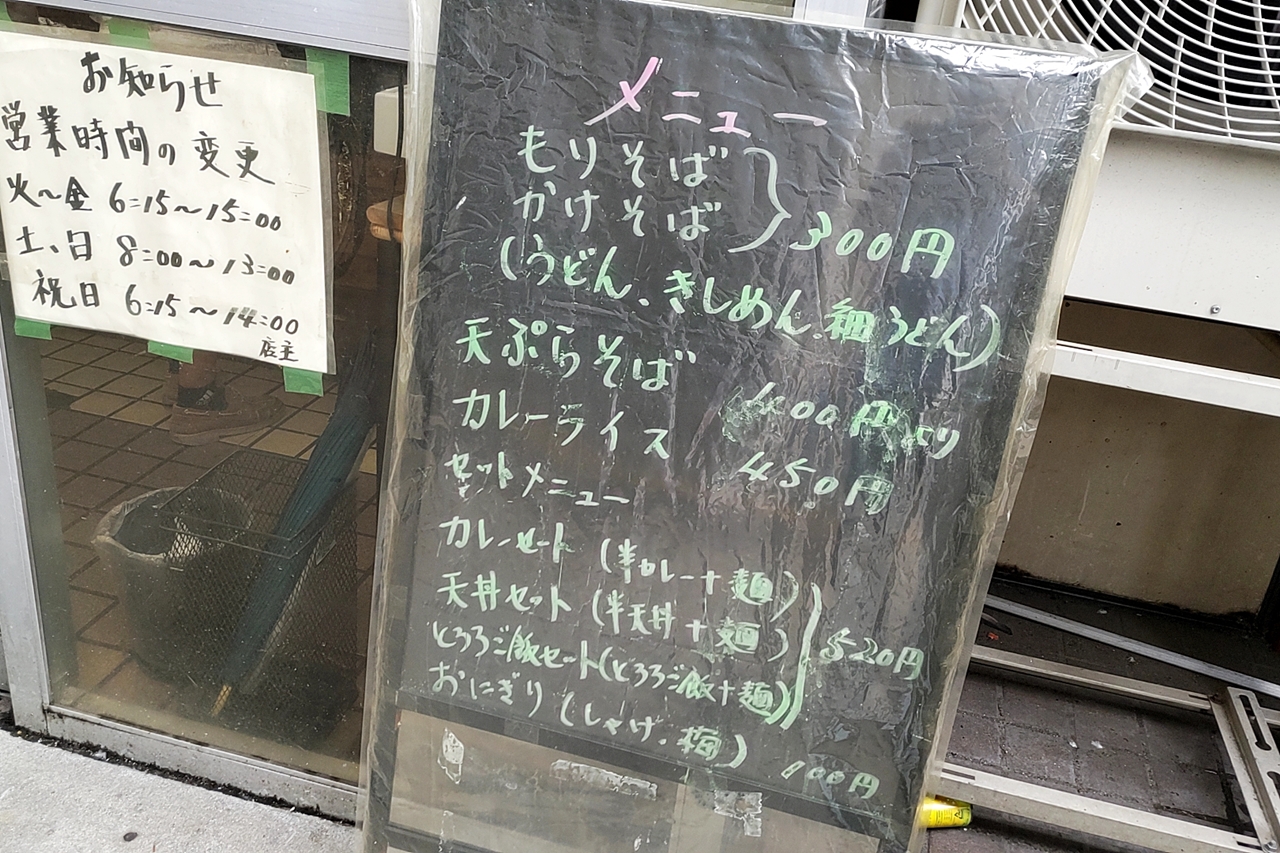 お知らせ
営業時間の変更
火〜金 6:15〜15:00
土、日 8:00〜13:00
祝日 6:15〜14:00
店主
メニュー
もりそば
かけそば
300円
(うどん、きしめん、細うどん)
天ぷらそば 400円より
カレーライス 450円
セットメニュー
カレーセット (半カレー+麺)
天丼セット (半天丼+麺)
とろろご飯セット(とろろご飯+麺)
520円
おにぎり (しゃけ、梅) 100円